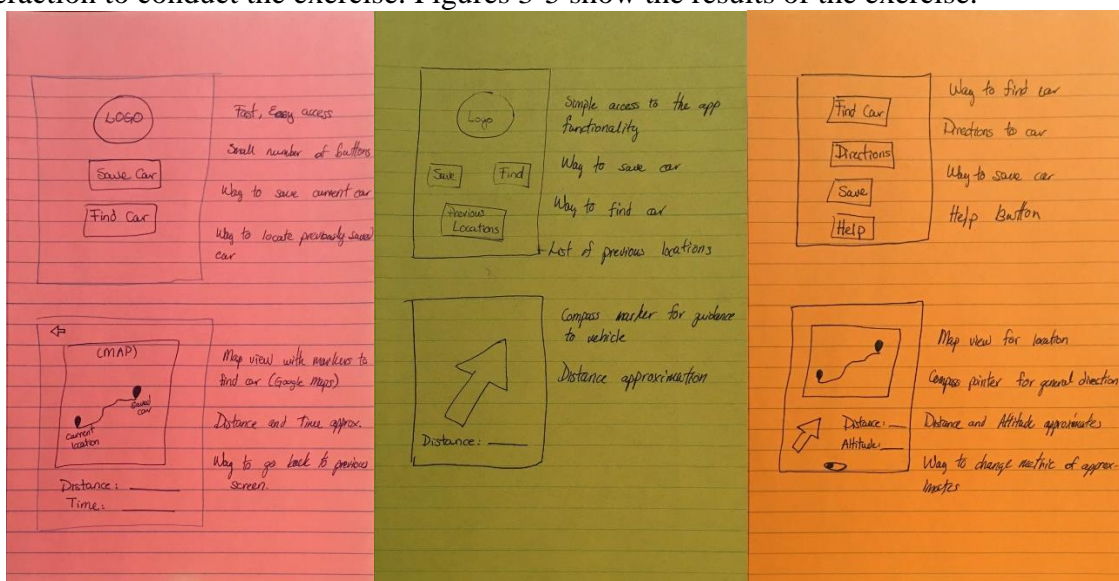 eraction to conduct the exercise. Figures 3-5 show the results of the exercise.
LOGO
Save Car
Find Car
Fast, Easy access
Small number of buttons
Way to save current car
Way to locate previously saved
car
(MAP)
saved
car
current
location
Distance:
Time:
Map view with markers to
find car (Google Maps)
Distance and Time approx.
Way to go back to previous
screen.
Logo
Save
Find
Previous
Locations
Simple access to the app
functionality
Way to save car
Way to find car
List of previous locations
Distance:
Compass marker for guidance
to vehicle
Distance approximation
Find Car
Directions
Save
Help
Way to find car
Directions to car
Way to save car
Help Button
Distance:
Altitude:
Map view for location
Compass pointer for general direction
Distance and Altitude approximates
Way to change metric of approx-
imates